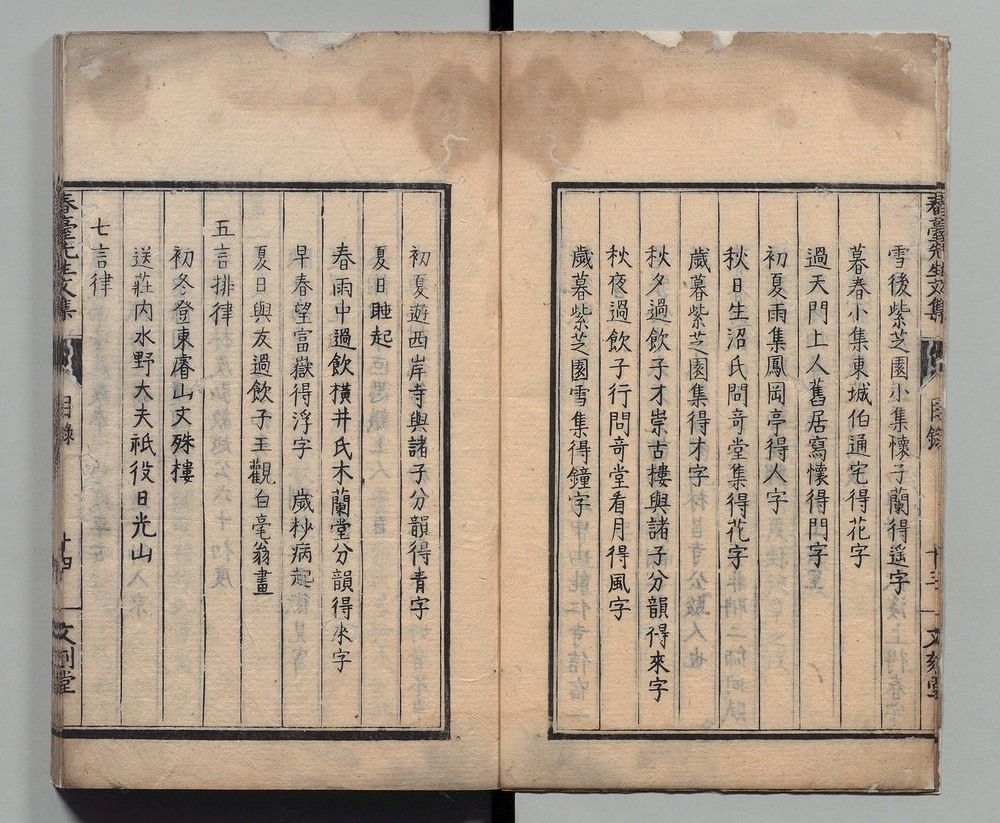 雪後紫芝園小集懷子蘭得遙字
暮春小集東城伯通宅得花字
過天門上人舊居寫懷得門字
初夏雨集鳳岡亭得人字
秋日生沼氏問奇堂集得花字
歲暮紫芝園集得才字
秋夕過飲子才崇古樓與諸子分韻得來字
秋夜過飲子行問奇堂看月得風字
歲暮紫芝園雪集得鐘字
初夏遊西岸寺與諸子分韻得青字
夏日睡起
春雨中過飲橫井氏木蘭堂分韻得來字
早春望富嶽得浮字 歲杪病起
夏日與友過飲子玉觀白毫翁畫
五言排律
初冬登東睿山文殊樓
送莊內水野大夫祇役日光山
七言律
春臺先生文集 目錄 十四 文刻堂